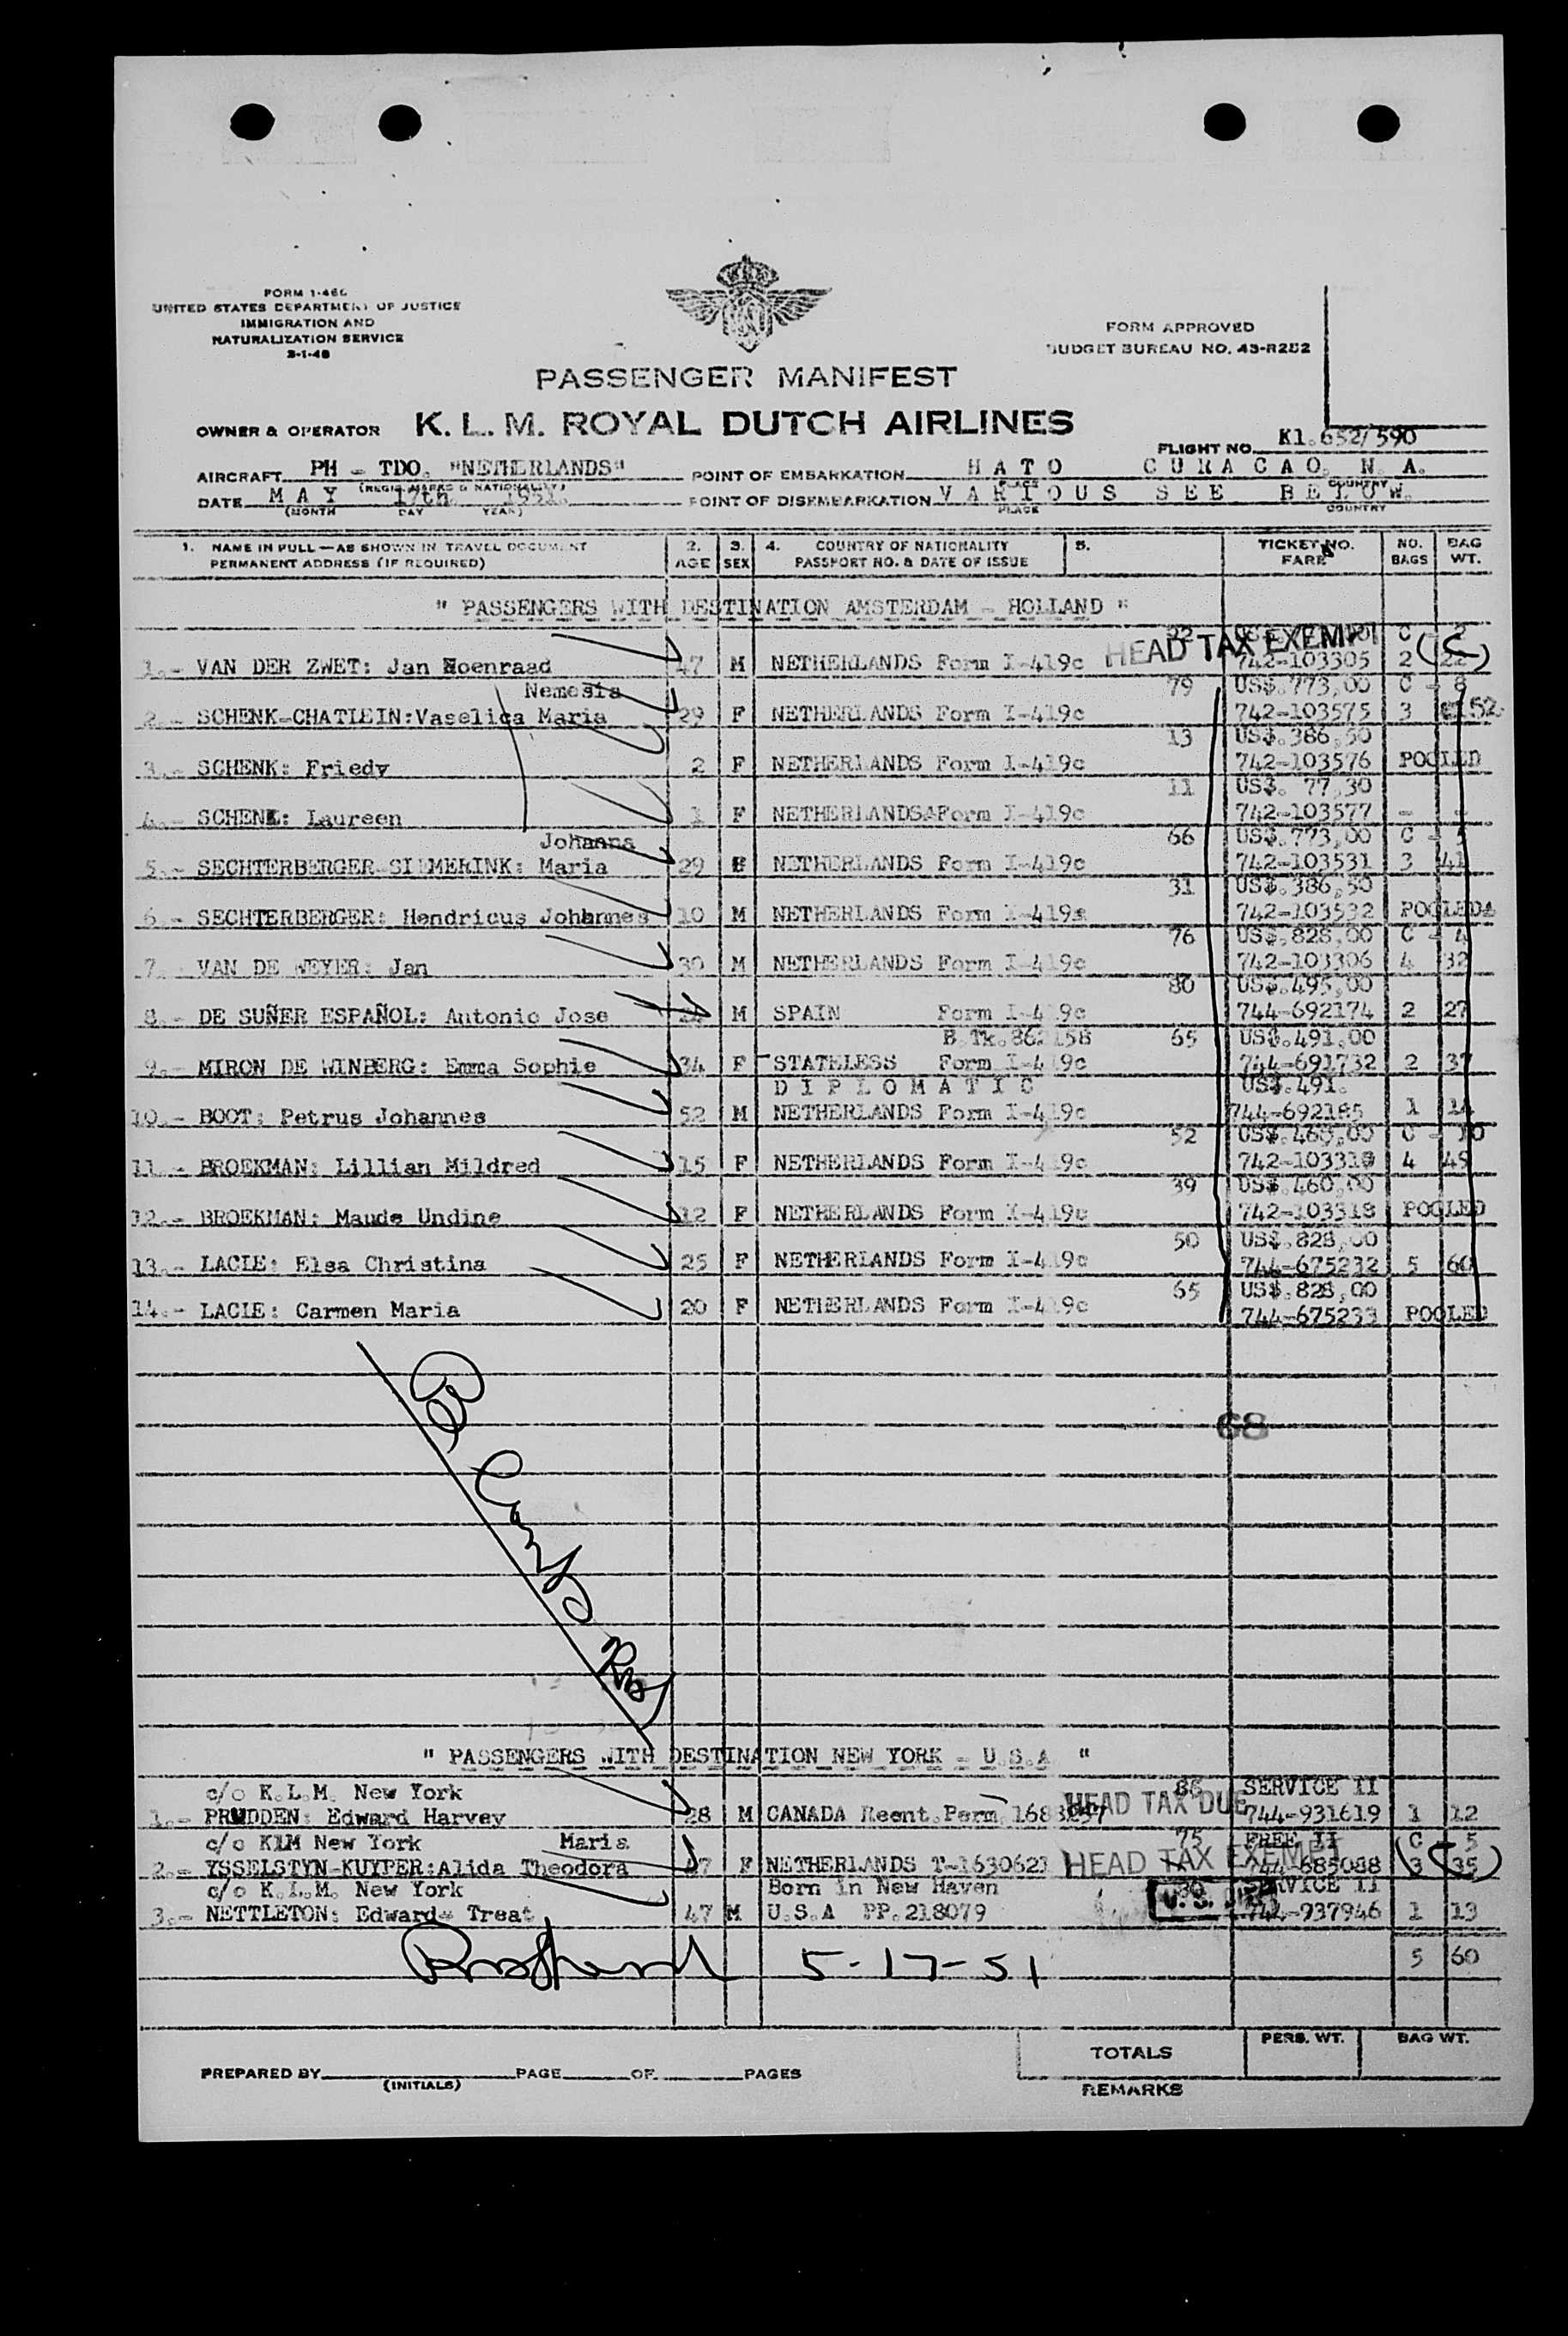 FORM I-466
UNITED STATES DEPARTMENT OF JUSTICE
IMMIGRATION AND
NATURALIZATION SERVICE
3-1-48
FORM APPROVED
BUDGET BUREAU NO. 43-R282
PASSENGER MANIFEST
OWNER & OPERATOR K. L. M. ROYAL DUTCH AIRLINES
FLIGHT NO. Kl.652/590
AIRCRAFT PH - TDO. "NETHERLANDS" POINT OF EMBARKATION HATO CURACAO, N. A.
(REGIS. MARKS & NATIONALITY) PLACE COUNTRY
DATE MAY 17th. 1951. POINT OF DISEMBARKATION VARIOUS SEE BELOW.
(MONTH DAY YEAR) PLACE COUNTRY
1. NAME IN FULL—AS SHOWN IN TRAVEL DOCUMENT 2. 3. 4. COUNTRY OF NATIONALITY 5. TICKET NO. NO. BAG
PERMANENT ADDRESS (IF REQUIRED) AGE SEX PASSPORT NO. & DATE OF ISSUE FARE BAGS WT.
" PASSENGERS WITH DESTINATION AMSTERDAM - HOLLAND "
HEAD TAX EXEMPT C - 2
1.- VAN DER ZWET: Jan Hoenraad 47 M NETHERLANDS Form I-419c 742-103305 2 22
Nemesia 79 US$.773,00 C - 8
2.- SCHENK-CHATLEIN:Vaselica Maria 29 F NETHERLANDS Form I-419c 742-103575 3 52
13 US$.386,50
3.- SCHENK: Friedy 2 F NETHERLANDS Form I-419c 742-103576 POOLED
11 US$. 77,30
4.- SCHENK: Laureen 1 F NETHERLANDS Form I-419c 742-103577 - -
Johanna 66 US$.773,00 C -
5.- SECHTERBERGER-SIEMERINK: Maria 29 NETHERLANDS Form I-419c 742-103531 3 41
31 US$.386,50
6.- SECHTERBERGER: Hendricus Johannes 10 M NETHERLANDS Form I-419c 742-103532 POOLED
76 US$.828,00 C - 4
7.- VAN DE WEYER: Jan 30 M NETHERLANDS Form I-419c 742-103306 4 32
80 US$.495,00
8.- DE SUÑER ESPAÑOL: Antonio Jose M SPAIN Form I-419c 744-692174 2 27
B.Tk.862158 65 US$.491,00
9.- MIRON DE WINBERG: Emma Sophie 34 F STATELESS Form I-419c 744-691732 2 37
DIPLOMATIC US$.491.
10.- BOOT: Petrus Johannes 52 M NETHERLANDS Form I-419c 744-692185 1 14
52 US$.460,00 C - 10
11.- BROEKMAN: Lillian Mildred 15 F NETHERLANDS Form I-419c 742-103319 4 49
39 US$.460,00
12.- BROEKMAN: Maude Undine 12 F NETHERLANDS Form I-419c 742-103318 POOLED
50 US$.828,00
13.- LACLE: Elsa Christina 25 F NETHERLANDS Form I-419c 744-675232 5 60
65 US$.828,00
14.- LACLE: Carmen Maria 20 F NETHERLANDS Form I-419c 744-675233 POOLED
68
" PASSENGERS WITH DESTINATION NEW YORK - U.S.A "
c/o K.L.M. New York SERVICE II
1.- PRUDDEN: Edward Harvey 28 M CANADA Reent.Perm. HEAD TAX DUE 744-931619 1 12
c/o KLM New York Maria 75 FREE II C 5
2.- YSSELSTYN-KUYPER:Alida Theodora F NETHERLANDS T-1630621 HEAD TAX EXEMPT 744-685088 3 35
c/o K.L.M. New York Born in New Haven SERVICE II
3.- NETTLETON: Edward Treat 47 M U.S.A PP.218079 U.S. 744-937946 1 13
5-17-51 5 60
PREPARED BY PAGE OF PAGES TOTALS PERS. WT. BAG WT.
(INITIALS) REMARKS